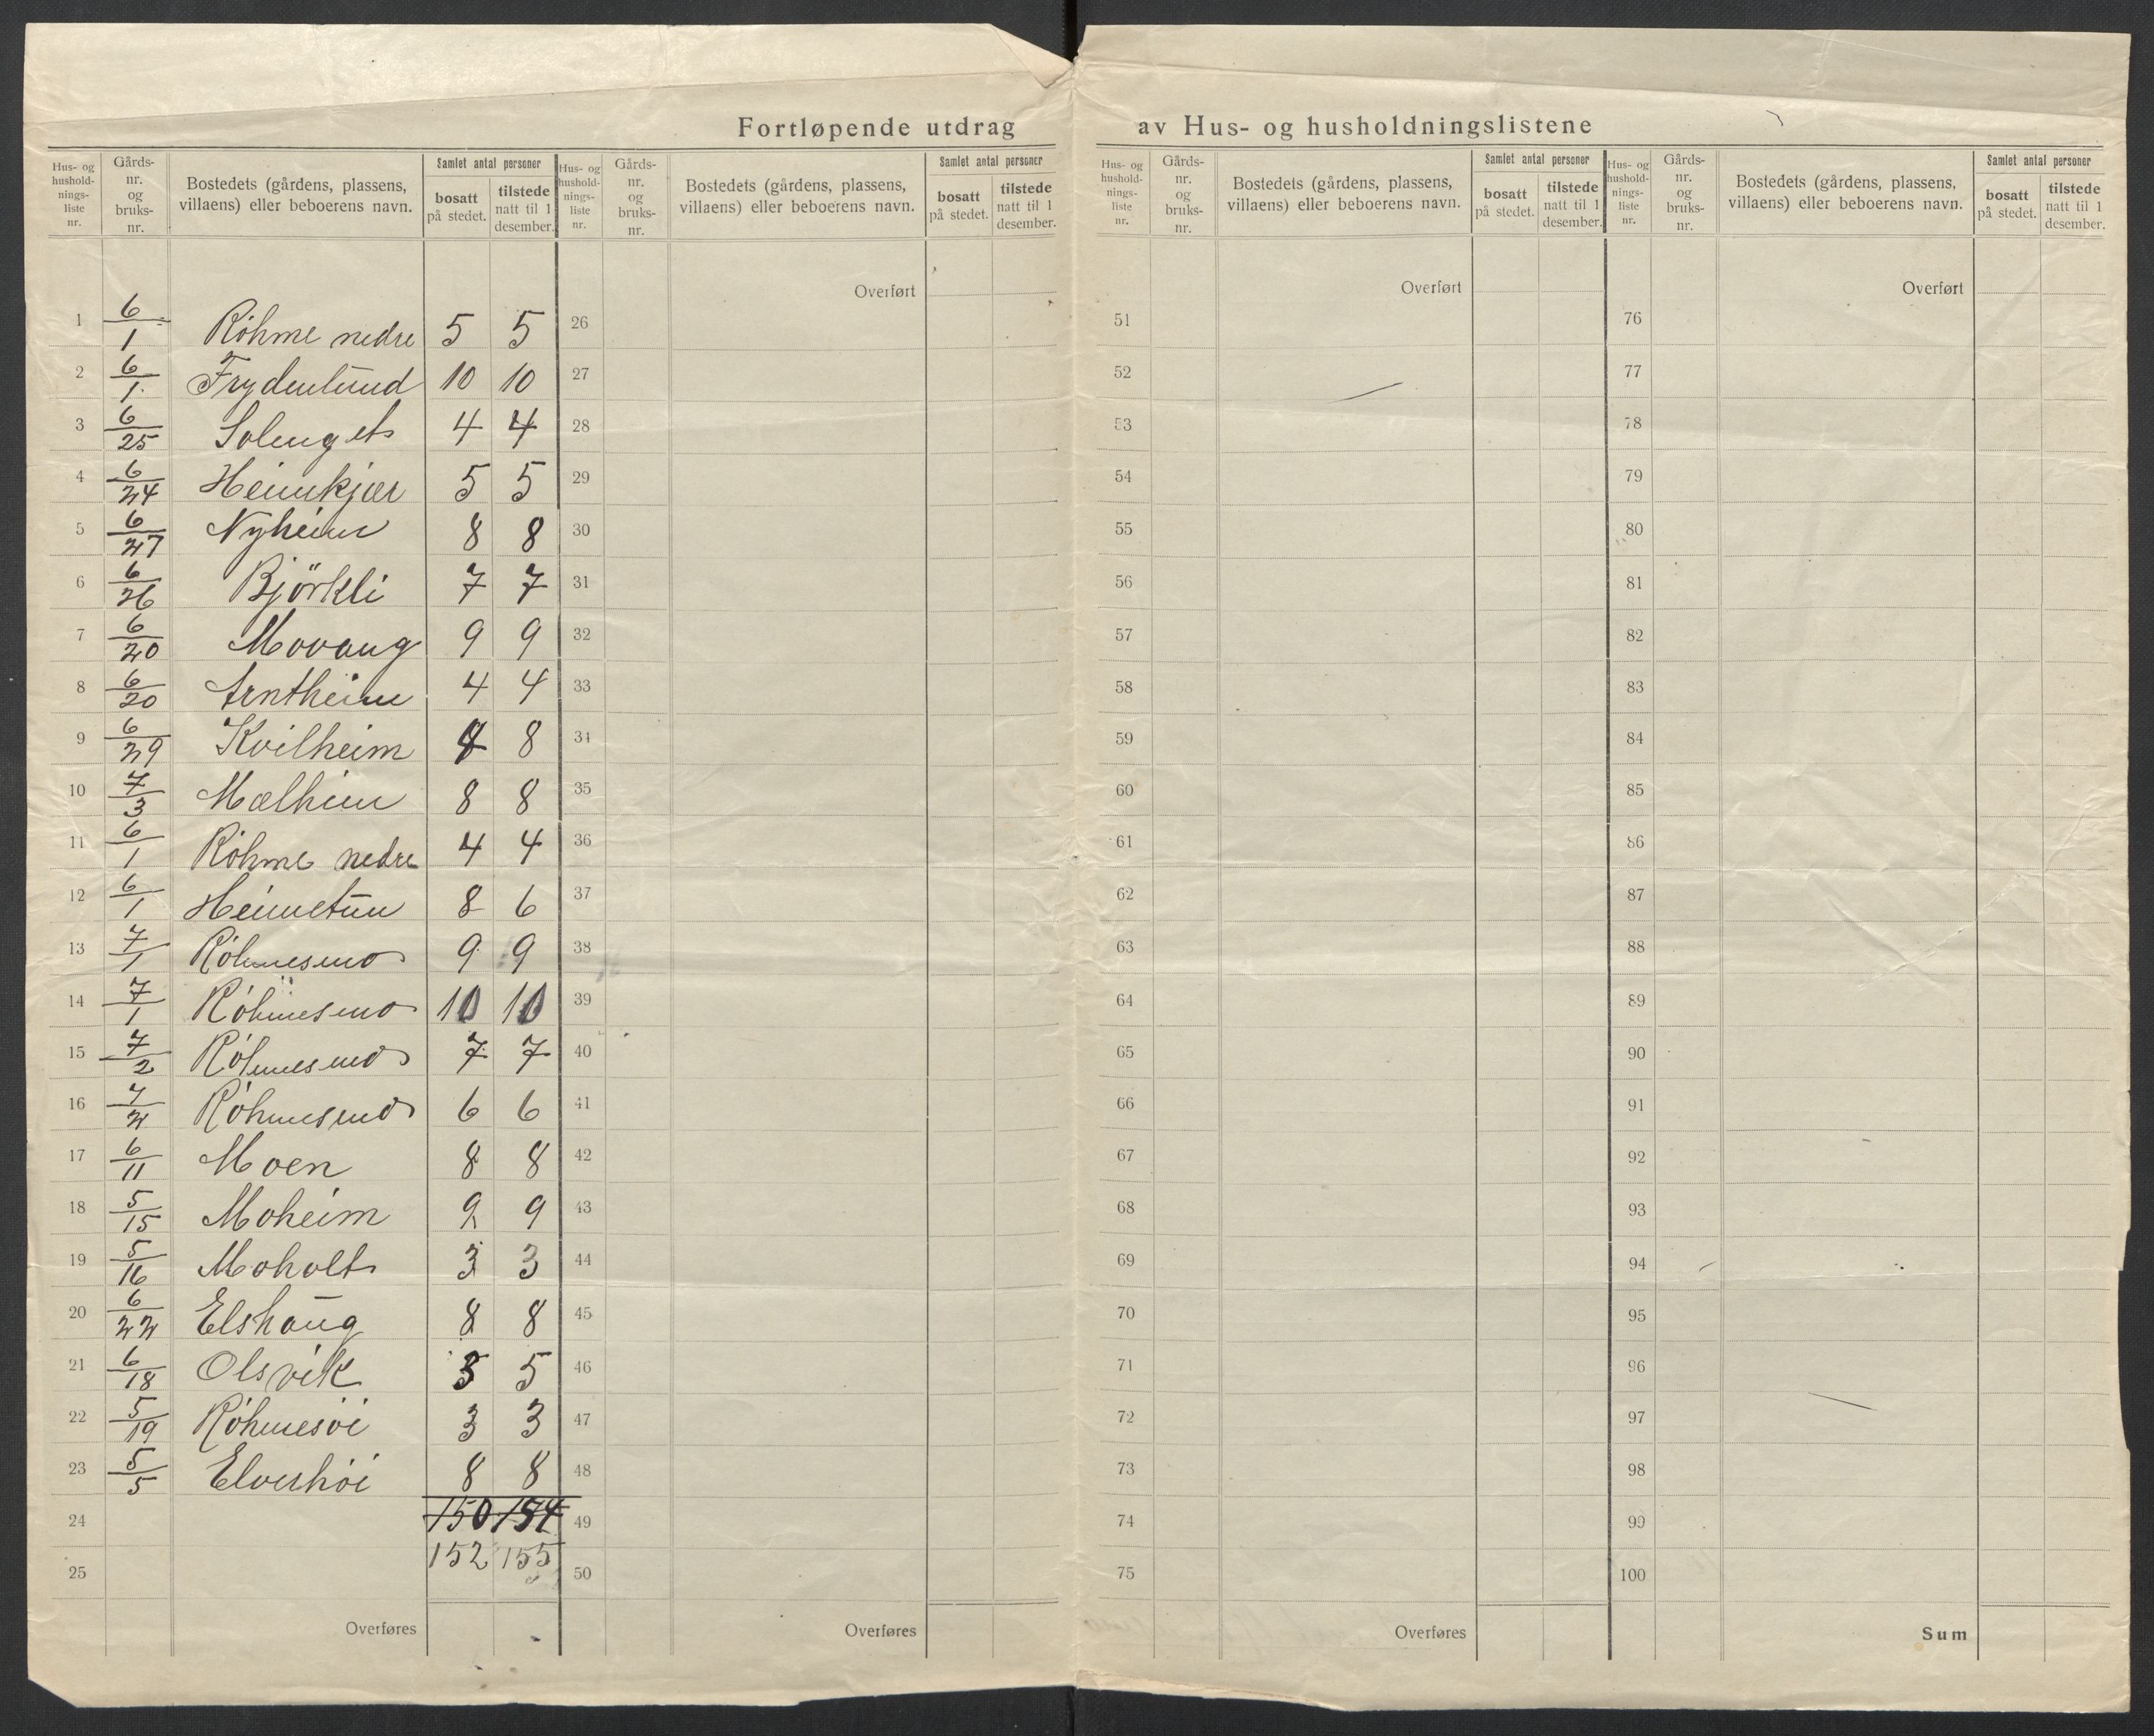 Fortløpende utdrag av Hus- og husholdningslistene
Hus- og husholdnings-liste nr. | Gårds-nr. og bruks-nr. | Bostedets (gårdens, plassens, villaens) eller beboerens navn. | Samlet antal personer | bosatt på stedet. | tilstede natt til 1 desember.
1 6/1 Röhme nedre 5 5
2 6/1 Frydenlund 10 10
3 6/25 Solenget 4 4
4 6/24 Heimkjær 5 5
5 6/27 Nyheim 8 8
6 6/26 Björkli 7 7
7 6/20 Movang 9 9
8 6/20 Arntheim 4 4
9 6/29 Kvilheim 8
10 7/3 Mælheim 8 8
11 6/1 Röhme nedre 4 4
12 6/1 Heimetun 8 6
13 7/1 Röhmesmo 9 9
14 7/1 Röhmesmo 10 10
15 7/2 Röhmesmo 7 7
16 7/2 Röhmesmo 6 6
17 6/11 Moen 8 8
18 5/15 Moheim 9 9
19 5/16 Moholt 3 3
20 6/22 Elshaug 8 8
21 6/18 Olsvik 5
22 5/19 Röhmesöi 3 3
23 5/5 Elvershöi 8 8
24 150 154
152 155
25
Overføres
Hus- og husholdnings-liste nr. | Gårds-nr. og bruks-nr. | Bostedets (gårdens, plassens, villaens) eller beboerens navn. | Samlet antal personer | bosatt på stedet. | tilstede natt til 1 desember.
Overført
26
27
28
29
30
31
32
33
34
35
36
37
38
39
40
41
42
43
44
45
46
47
48
49
50
Overføres
Hus- og husholdnings-liste nr. | Gårds-nr. og bruks-nr. | Bostedets (gårdens, plassens, villaens) eller beboerens navn. | Samlet antal personer | bosatt på stedet. | tilstede natt til 1 desember.
Overført
51
52
53
54
55
56
57
58
59
60
61
62
63
64
65
66
67
68
69
70
71
72
73
74
75
Overføres
Hus- og husholdnings-liste nr. | Gårds-nr. og bruks-nr. | Bostedets (gårdens, plassens, villaens) eller beboerens navn. | Samlet antal personer | bosatt på stedet. | tilstede natt til 1 desember.
Overført
76
77
78
79
80
81
82
83
84
85
86
87
88
89
90
91
92
93
94
95
96
97
98
99
100
Sum